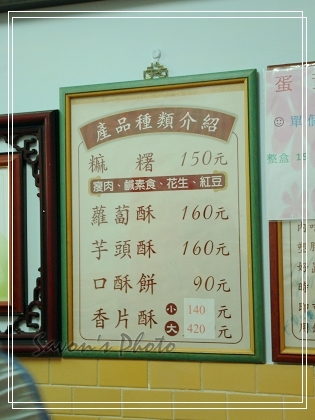 產品種類介紹
糍糬 150元
瘦肉、鹹素食、花生、紅豆
蘿蔔酥 160元
芋頭酥 160元
口酥餅 90元
香片酥 小 140 元
大 420 元
蛋
☺單個
整盒 15
Savon's Photo